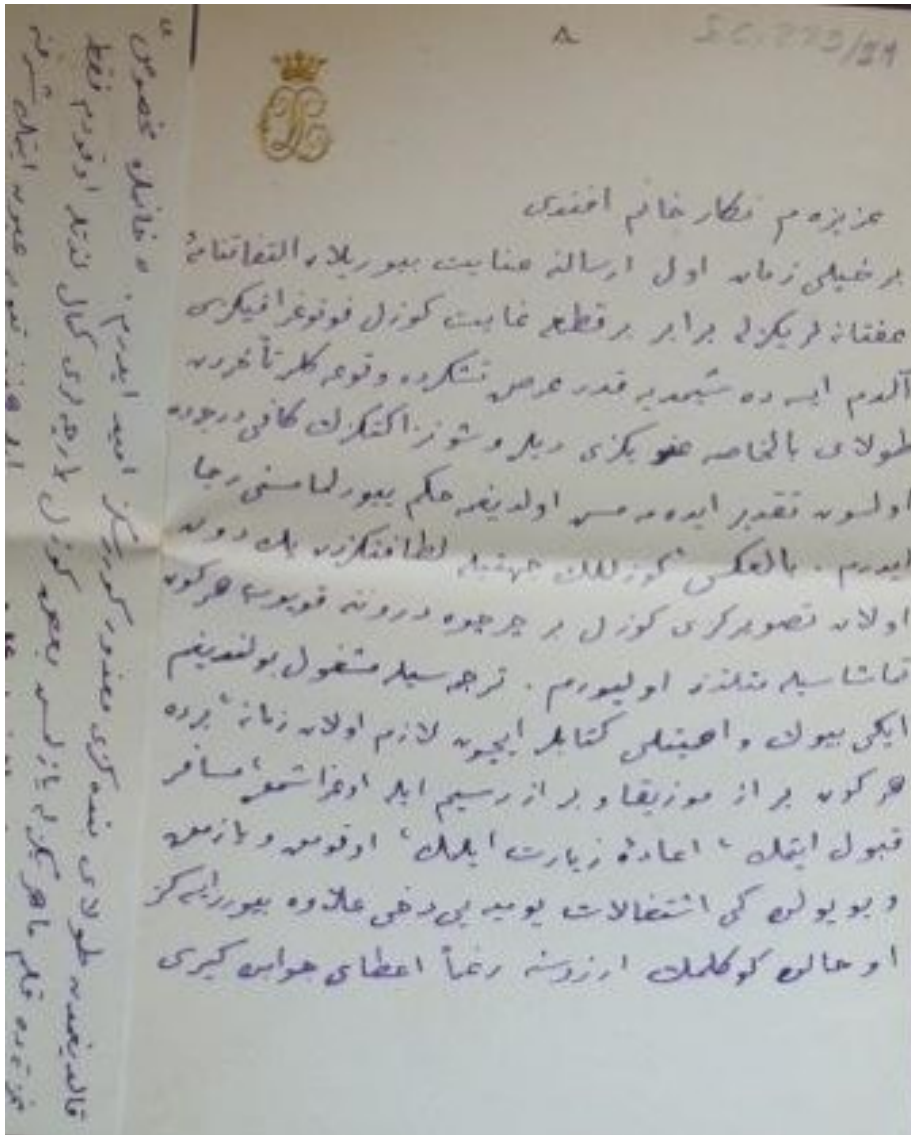 S.C. 279/21
٨
عزيزه م نكار خانم افندى
بر خيلى زمان اول ارساله عنايت بيوريلان التفاتنامۀ
عفتانه لريكزله برابر بر قطعه غايت كوزل فوتوغرافيكزى
آلدم ايسه ده شيمدى يه قدر عرض تشكرده وقوعه كلن تأخردن
طولاى بالخاصه عفويكزى ديلر و شو نزاكتكزك كافى درجه ده
اولسون تقدير ايده مه مش اولديغمه حكم بيورلمامسنى رجا
ايدرم . بالعكس كوزللك جهتيله لطافتكزدن پك دون
اولان تصويركزى كوزل بر چرچوه دروننه قويوب هركون
تماشاسيله متلذذ اوليورم . ترجمه سيله مشغول بولنديغم
ايكى بيوك و اهميتلى كتابلر ايچون لازم اولان زمانه برده
هر كون بر از موزيقا و بر از رسيم ايله اوغراشمق، مسافر
قبول ايتمك، اعادۀ زيارت ايلمك، اوقومق و يازمق
و بو يولده كى اشتغالات يوميه يى دخى علاوه بيوررسه كز
او حالده كوكلمك ارزوسنه رغماً اعطاى جوابده كيرى
قالديغمدن طولاى بنده كزى معذور كوررسكز اميد ايدرم .
خانملره مخصوص
غزته ده قلم ماهركزله يازلمش بعض كوزل پارچه لرى كمال لذتله اوقودم فقط